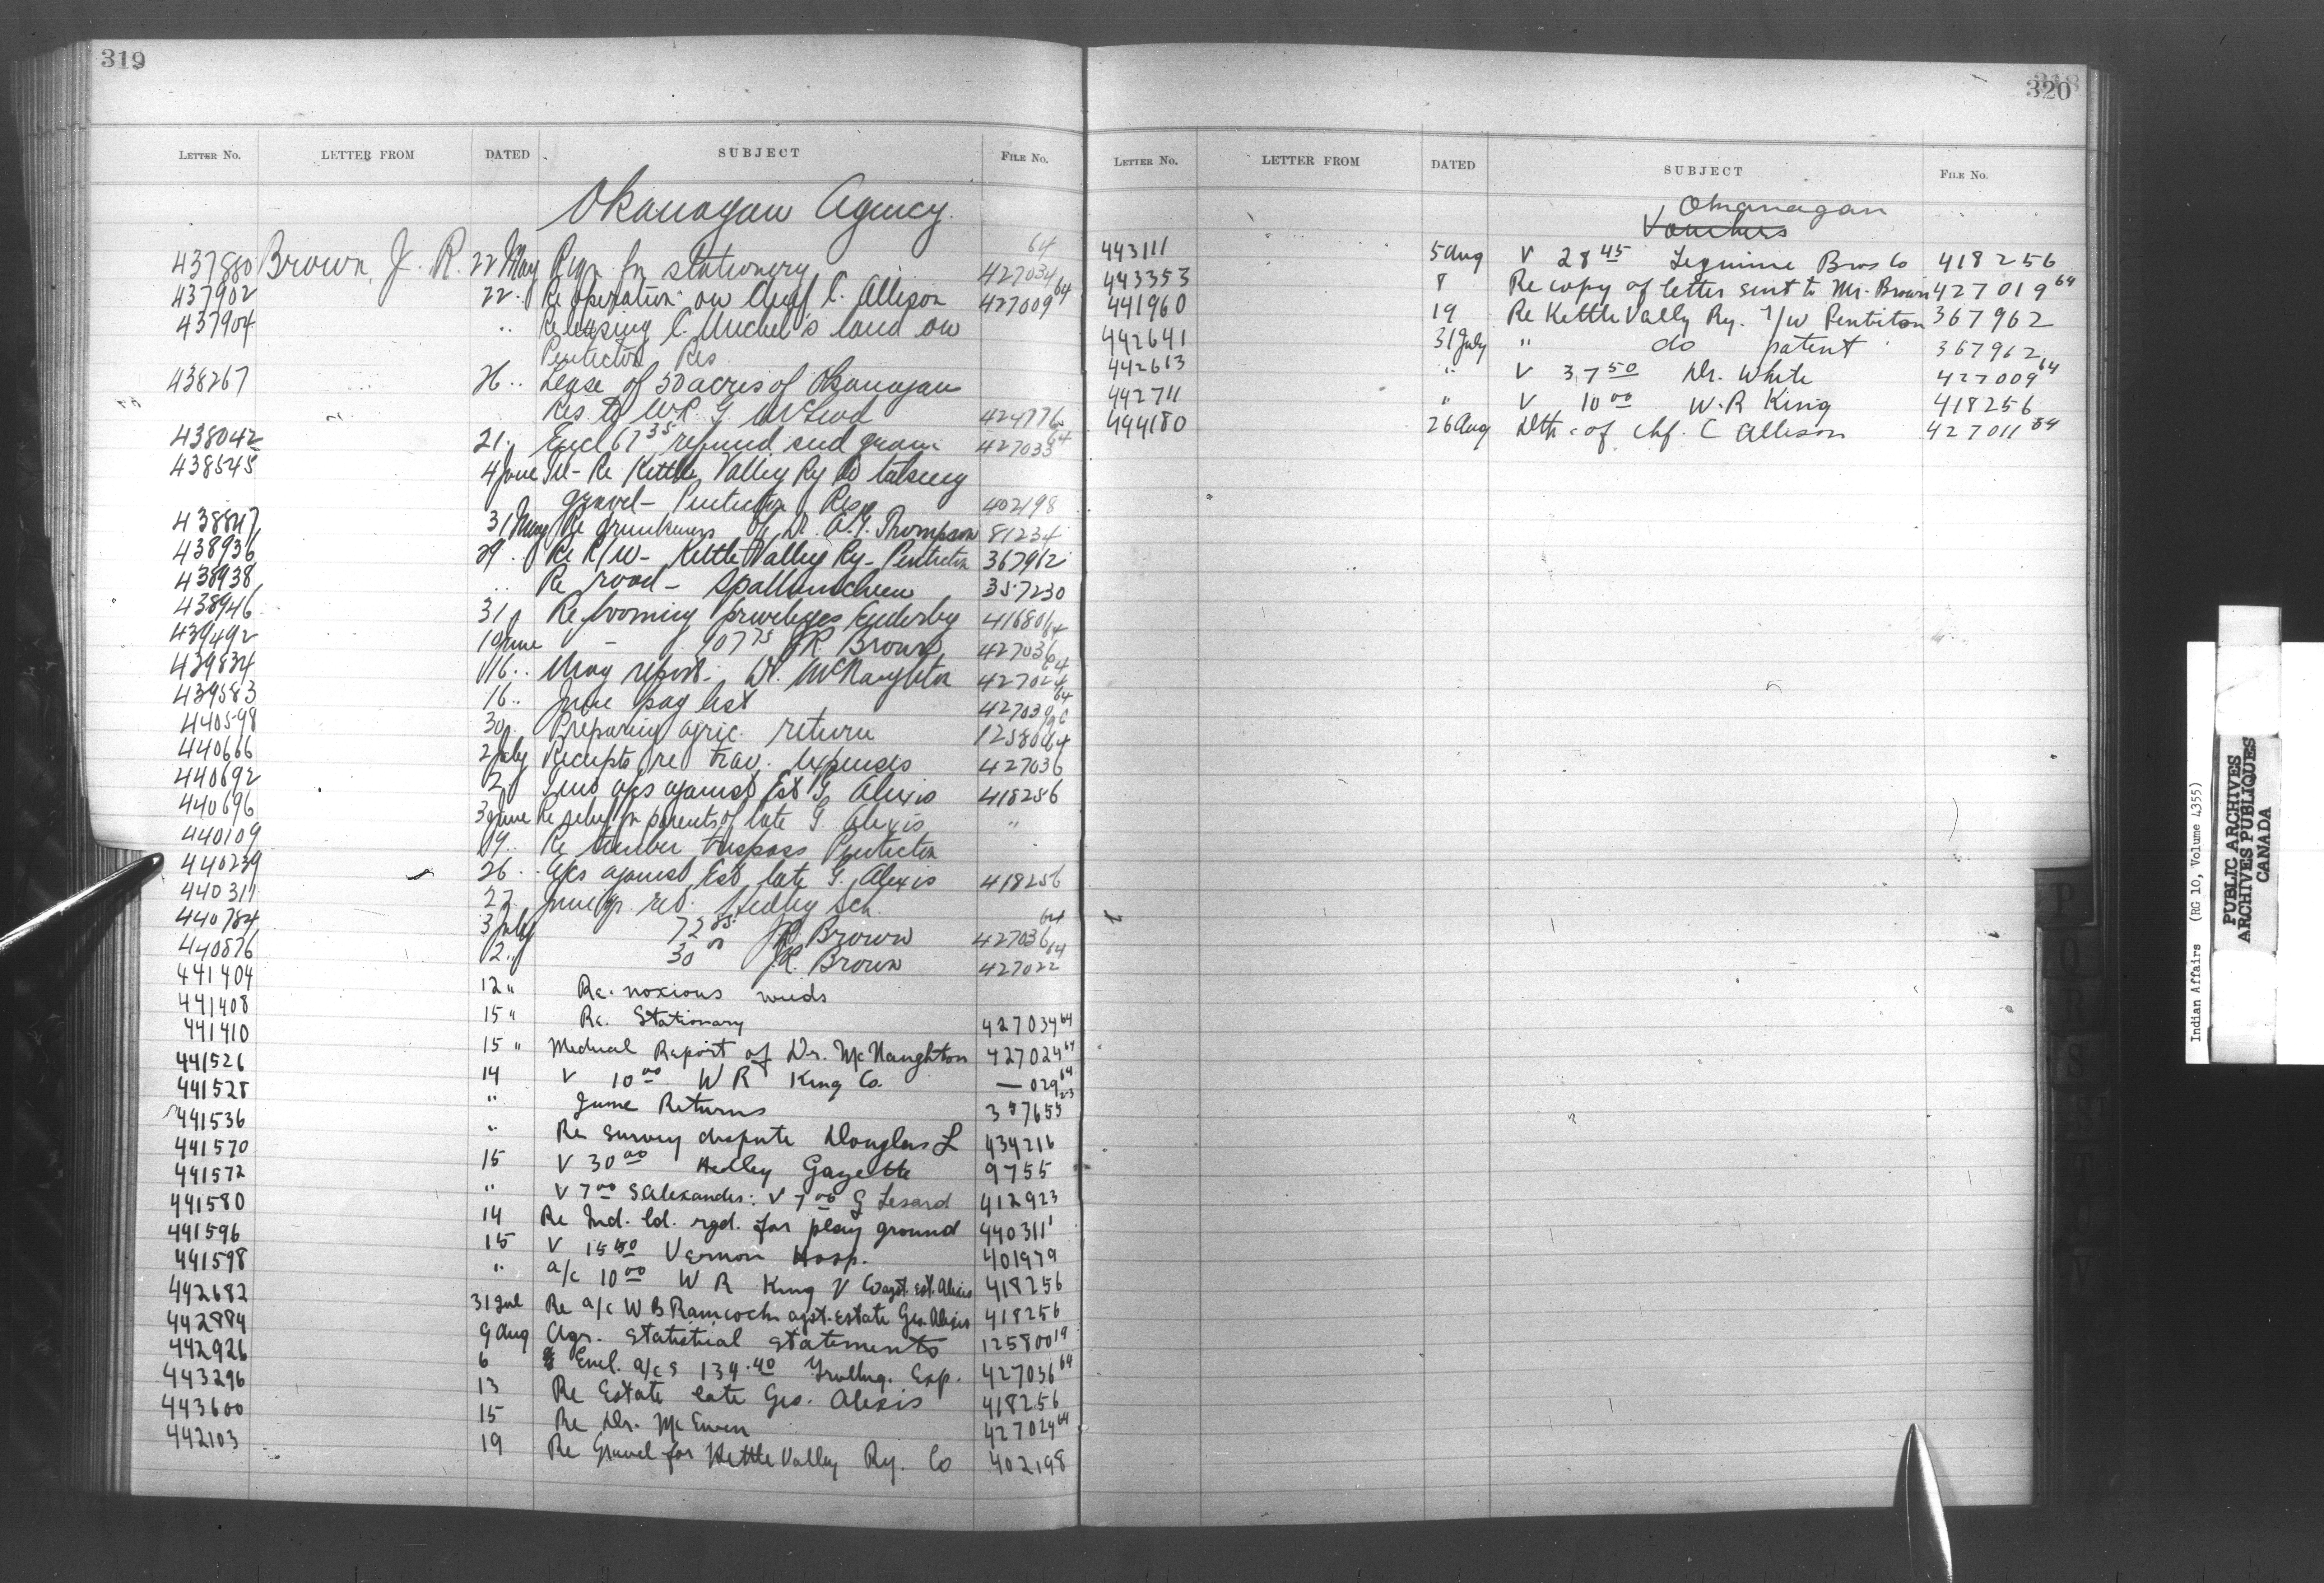 319
LETTER NO. LETTER FROM DATED SUBJECT FILE NO.
Okanagan Agency.
437880 Brown, J. R. 22 May Reqn. for stationery 427034 64
437902 22. Re operation on Chief C. Allison 427009 64
437904 " Re leasing C. Michel's land on
Penticton Res
438267 26 " Lease of 50 acres of Okanagan
Res. to W.R. G. McLeod 424776
438042 21. Encl 67 35 refund seed grain 427033 64
438545 4 June Tel- Re Kettle Valley Ry Co taking
gravel- Penticton Res 402198
438847 31 May Re drunkenness of Dr. A.T. Thompson 81234
438936 29. Re R/W- Kettle Valley Ry- Penticton 367962
438938 " Re road- Spallumcheen 357230
438946 31 Re booming privileges Enderby 416801
439492 19 June - 107 75 J.R. Brown 427036 64
439834 16.. May report- Dr. McNaughton 427024 64
439583 16.. June pay list 427030 64
440598 30. Preparing agric. return 125800
440666 2 July Receipts re trav. expenses 427036 64
440692 2 Two a/cs against Est G. Alexis 418256
440696 3 June Re relief for parents of late G. Alexis "
440109 19.. Re timber trespass Penticton
440239 26.. A/cs against Est late G. Alexis 418256
440311 27 June qr. ret. Hedley Sch.
440784 3 July 72 85 J.R. Brown 427036 64
440876 2.. 30 00 J.R. Brown 427022 64
441404 12 " Re. noxious weeds
441408 15 " Re. Stationary 427034 64
441410 15 " Medical Report of Dr. McNaughton 427024 64
441526 14 V 10 00 W R King Co. — 029 64
441528 " June Returns 357655 23
441536 " Re survey dispute Douglas L 434216
441570 15 V 30 00 Hedley Gazette 9755
441572 " V 7 00 S Alexander: V 7 00 G Lesard 412923
441580 14 Re Ind. ld. rqd. for play ground 440311
441596 15 V 15 50 Vernon Hosp. 401979
441598 " a/c 10 00 W R King V Co agst. est. Alexis 418256
442682 31 Jul Re a/c W B Ramcoch agst. Estate Geo Alexis 418256
442884 9 Aug Agr. Statistical Statements 125800 19
442926 6 Encl. a/cs 134.40 Trvllng. Exp. 427036 64
443296 13 Re Estate late Geo. Alexis 418256
443600 15 Re Dr. McEwen 427024 64
442103 19 Re Gravel for Kettle Valley Ry. Co 402198
320
LETTER NO. LETTER FROM DATED SUBJECT FILE NO.
Okanagan
Vouchers
443111 5 Aug V 28 45 Leguime Bros Co 418256
443353 8 Re copy of letter sent to Mr. Brown 427019 64
441960 19 Re Kettle Vally Ry. r/w Penticton 367962
442641 31 July " do patent 367962
442663 " V 37 50 Dr. White 427009 64
442711 " V 10 00 W.R King 418256
444180 26 Aug Dth. of Chf. C Allison 427011 64
P
Q
R
S
T
V
Indian Affairs (RG 10, Volume 4355)
PUBLIC ARCHIVES
ARCHIVES PUBLIQUES
CANADA